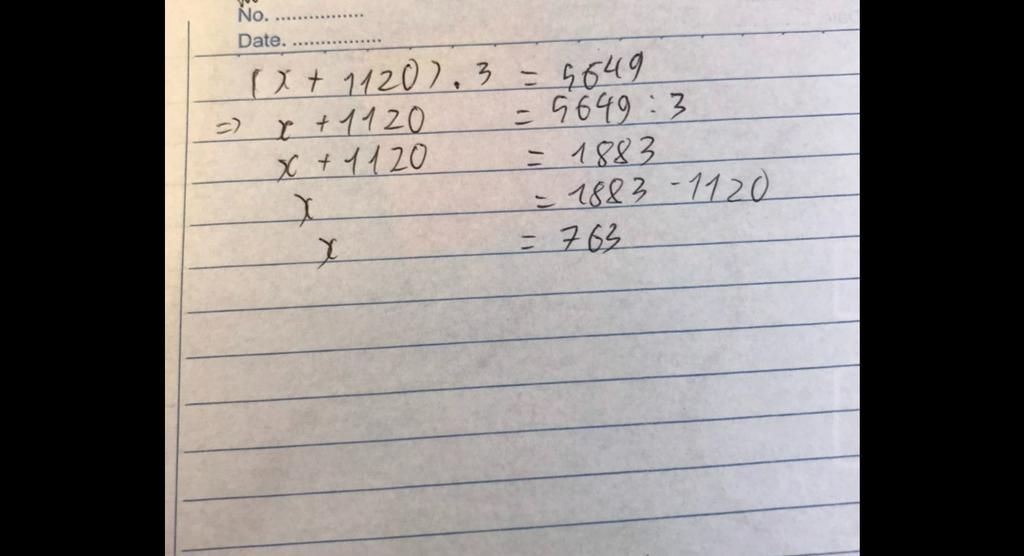 No. ................
Date. ................
(x + 1120) . 3 = 5649
=> x + 1120 = 5649 : 3
x + 1120 = 1883
x = 1883 - 1120
x = 763